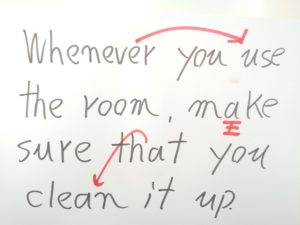 Whenever you use
the room, make
sure that you
clean it up.